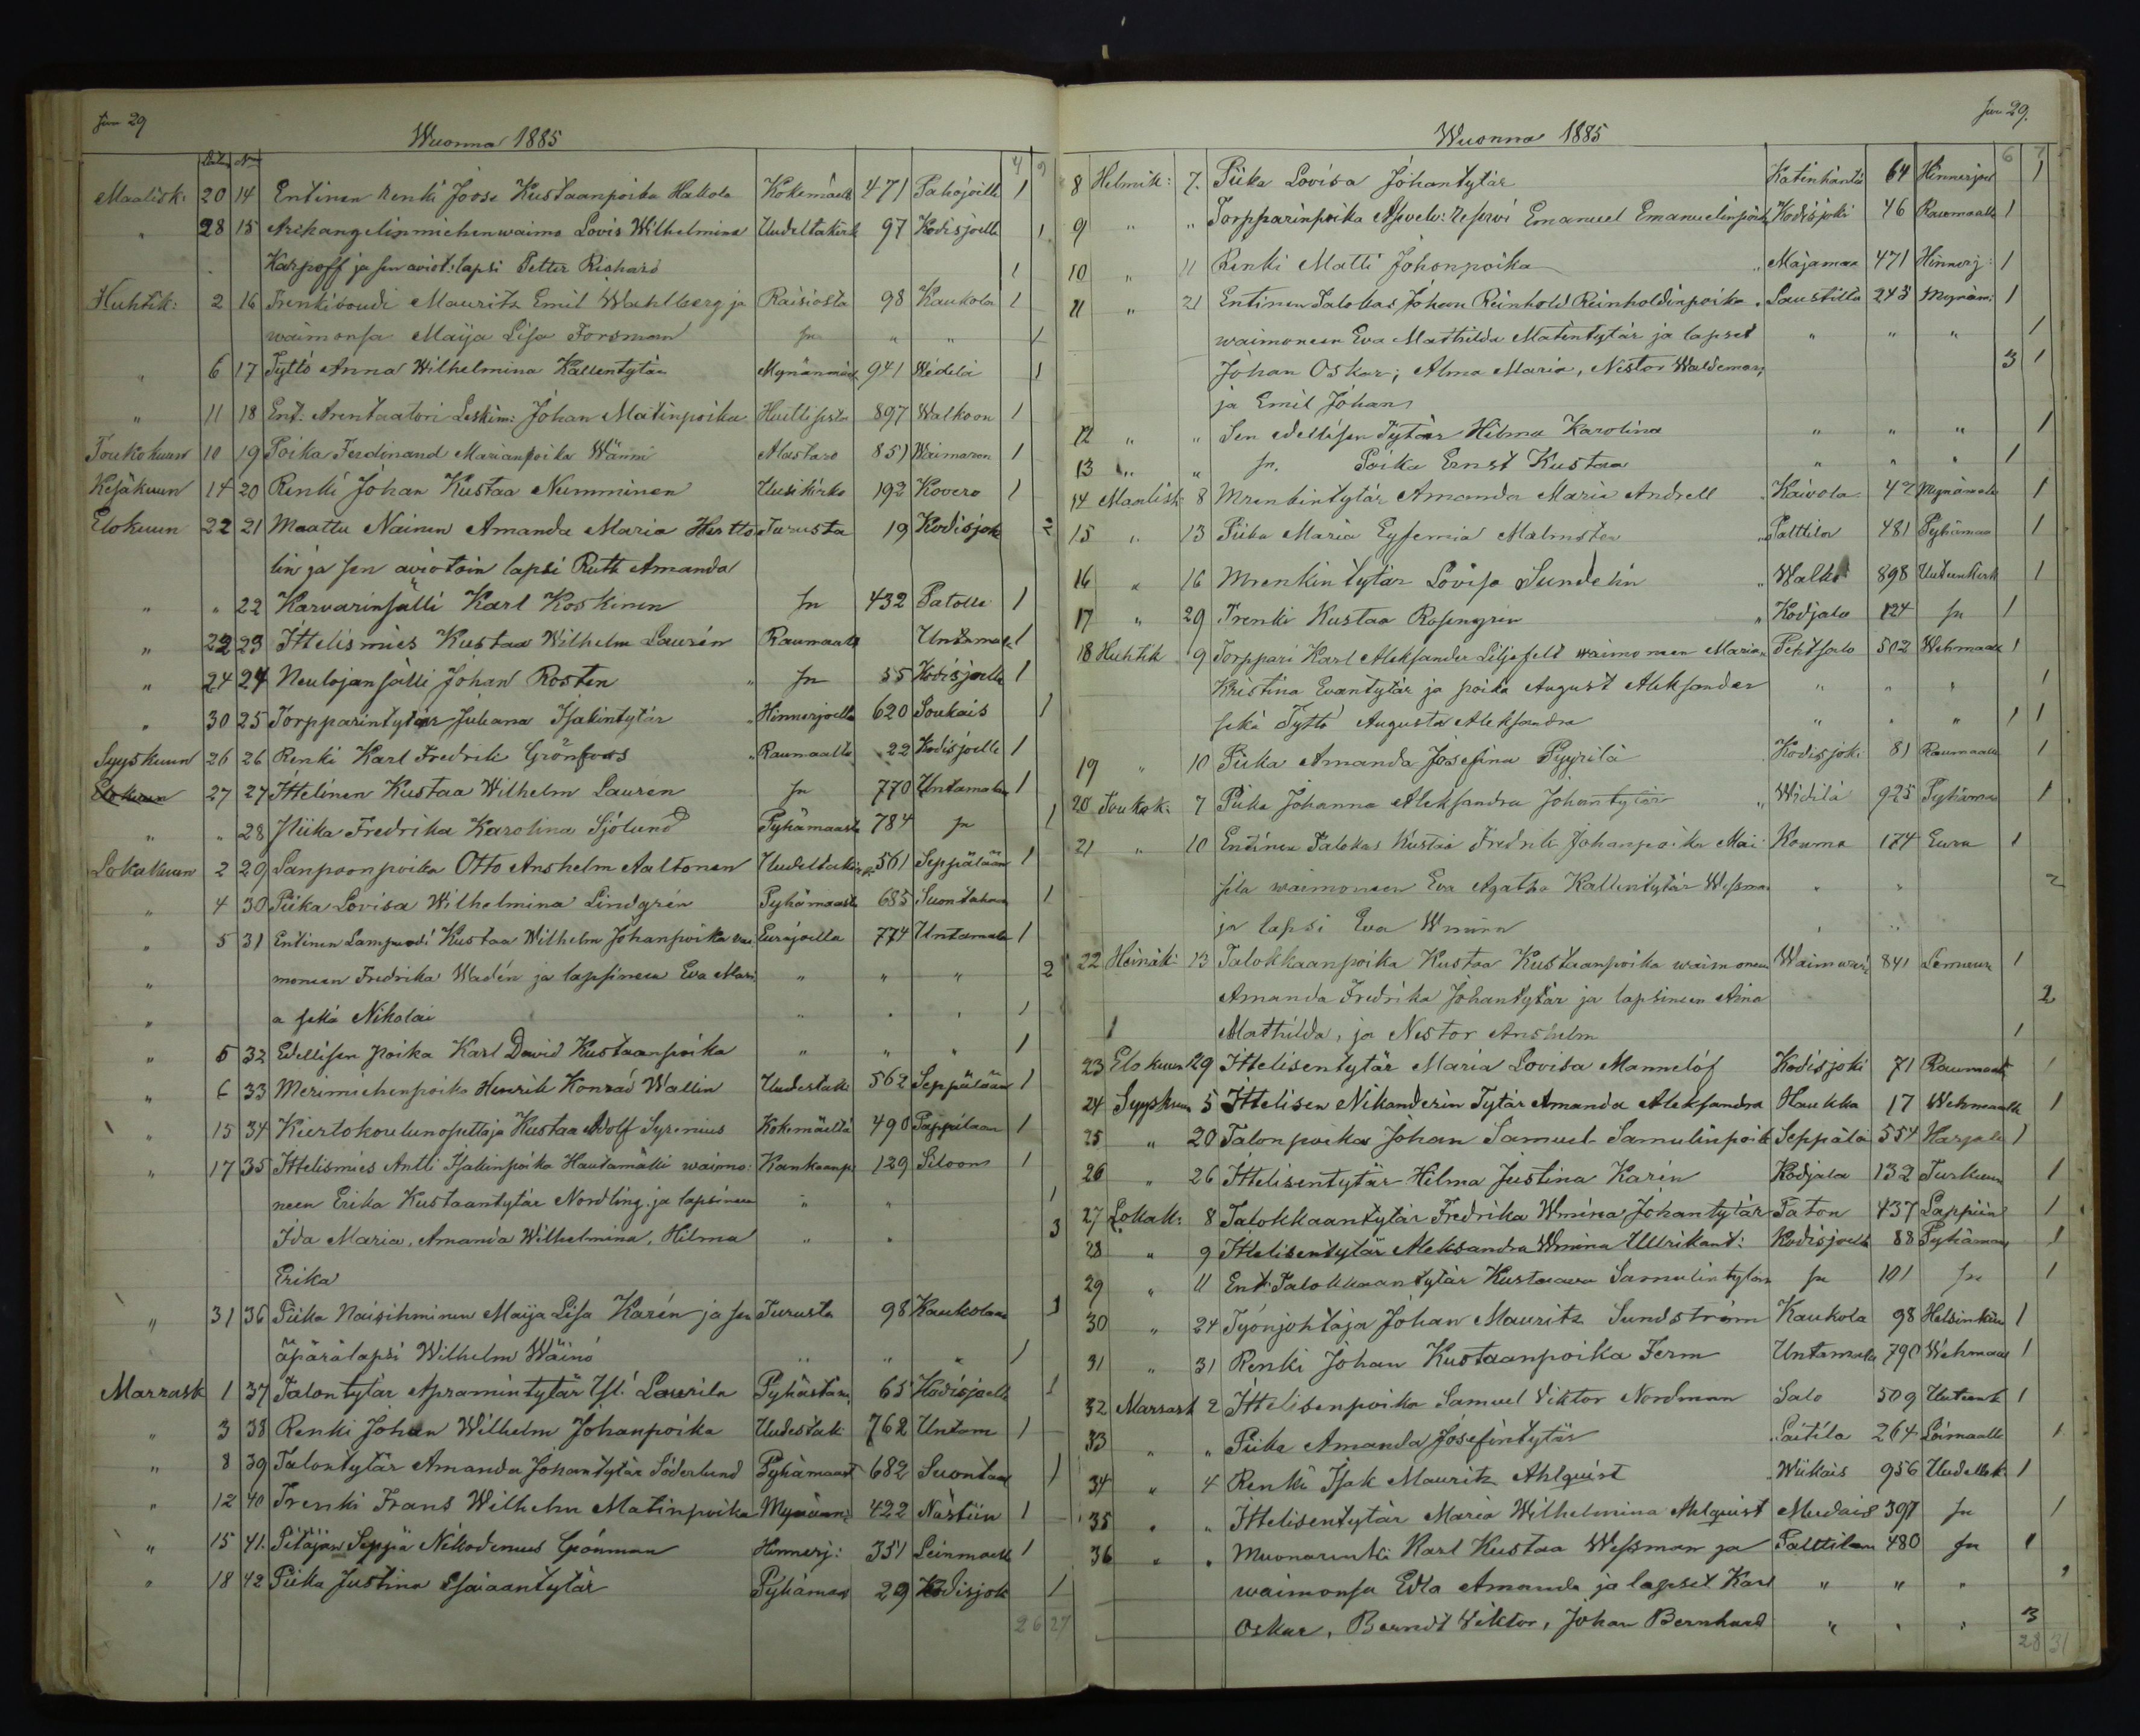 29
Wuonna 1885
Maalisk: 20 14 Entinen Renki Joose Kustaanpoika Hakola Kokemäeltä 471 Pahojoelle 1
" 28 15 Arkangelinmiehenwaimo Lovis Wilhelmina 97 Kodisjoelle 1
Karpoff ja sen aviot: lapsi Petter Rishard 1
Huhtik: 2 16 Trenkivoudi Mauritz Emil Wahlberg ja Raisiosta 98 Kaukola 1
waimonsa Maija Lisa Forsman " " 1
" 6 17 Tyttö Anna Wilhelmina Kallentytär 941 Widilä 1
" 11 18 Ent. Arentaatori Leskim: Johan Matinpoika 897 Walkoon 1
Toukokuun 10 19 Poika Ferdinand Marianpoika Wänni Alastaro 851 1
Kesäkuun 14 20 Renki Johan Kustaa Numminen Uusikirko 192 Kovero 1
Elokuun 22 21 Maattu Nainen Amanda Maria Hertto Turusta 19 Kodisjok 2
lin ja sen aviotoin lapsi Ruth Amanda
" " 22 Karvarinsälli Karl Koskinen sn 432 1
" 22 23 Ittelismies Kustaa Wilhelm Laurén Raumaalta 1
" 24 24 Neulojansälli Johan Rosten " sn 55 Kodisjoelle 1
" 30 25 Torpparintytär Juliana Isakintytär Hinnerjoelta 620 Soukais 1
Syyskuun 26 26 Renki Karl Fredrik Grönfors Raumaalta 22 Kodisjoelle 1
27 27 Ittelinen Kustaa Wilhelm Lauren sn 770 Untamala 1
" " 28 Piika Fredrika Karolina Sjölund Pyhämaasta 784 sn 1
Lokakuun 2 29 Sanpoonpoika Otto Anshelm Aaltonen 561 Seppälään 1
" 4 30 Piika Lovisa Wilhelmina Lindgrén Pyhämaasta 685 1
" 5 31 Entinen Kustaa Wilhelm Johanpoika wai Eurajoelta 774 Untamala 1
" moneen Fredrika Wadén ja lapsineen Eva Mari " " " 2
" a sekä Nikolai " " " 1
" 5 32 Edellisen poika Karl David Kustaanpoika " " " 1
" 6 33 Merimiehenpoika Henrik Konrad Wallin Uudestaki 562 Seppälään 1
" 15 34 Kiertokoulunopettaja Kustaa Adolf Syrenius Kokemäeltä 490 Pappilaan 1
" 17 35 Ittelismies Antti Isakinpoika Hautamäki waimo: Kankaanp: 129 1
neen Erika Kustaantytär Nordling ja lapsineen " " 1
Ida Maria, Amanda Wilhelmina, Hilma " " 3
Erika
" 31 36 Piika Naisihminen Maija Lisa Karén ja sen Turusta 98 Kaukolaan 1
äpärälapsi Wilhelm Wäinö " " " 1
Marrask 1 37 Talontytär Apramintytär Laurila 65 Kodisjoelle 1
" 3 38 Renki Johan Wilhelm Johanpoika Uudestaki 762 Untam 1
" 8 39 Talontytär Amanda Johantytär Söderlund Pyhämaast 682 1
" 12 40 Trenki Frans Wilhelm Matinpoika 422 Nästiin 1
" 15 41. Pitäjän Seppä Nikodemus Grönman Hinnerj: 351 1
" 18 42 Piika Justina Esaiaantytär 29 Kodisjok 1
26 27
29.
Wuonna 1885
8 Helmik: 7. Piika Lovisa Johantytär Katinhäntä 64 Hinnerjoel 1
9 " " Torpparinpoika Emanuel Emanuelinpoika Kodisjoki 46 Raumaalle 1
10 " 11 Renki Matti Johonpoika " Majamaa 471 Hinnerj: 1
11 " 21 Entinen Talokas Johan Reinhold Reinholdinpoika Saustilla 243 Mynäm: 1
waimoneen Eva Mathilda Matintytär ja lapset " " " 1
Johan Oskar, Alma Maria, Nestor Waldemar, 3 1
ja Emil Johan
12 " " Sen edellisen Tytär Hilma Karolina " " " 1
13 " " sn. Poika Ernst Kustaa " " " 1
14 Maalisk: 8 Mrenkintytär Amanda Maria Andsell Kaivola 42 1
15 " 13 Piika Maria Eysemia Malmsten Palttila 481 Pyhämaa 1
16 " 16 Mrenkintytär Lovisa Sundelin " Walko 898 1
17 " 29 Trenki Kustaa Rosengren " Kodjala 124 sn 1
18 Huhtik 9 Torppari Karl Aleksander Liljefelt waimoneen Maria 502 Wehmaale 1
Kristina Evantytär ja poika August Aleksander " " " 1
sekä Tyttö Augusta Aleksandra " " " 1 1
19 " 10 Piika Amanda Josefina Pyyrilä Kodisjoki 81 Raumaalle 1
20 Toukok: 7 Piika Johanna Aleksandra Johantytär " Widilä 925 Pyhämaa 1
21 " 10 Entinen Talokas Kustaa Fredrik Johanpoika Mai Kouma 174 Eura 1
sila waimoneen Eva Agatha Kallentytär Wessman " " 2
ja lapsi Eva Wmina " "
22 Heinäk: 13 Talokkaanpoika Kustaa Kustaanpoika waimoneen 841 1
Amanda Fredrika Johantytär ja lapsineen Aina 2
Mathilda, ja Nestor Anshelm 1
23 Elokuun 29 Ittelisentytär Maria Lovisa Mannelöf Kodisjoki 71 Raumaalle 1
24 Syyskuun 5 Ittelisen Nikanderin Tytär Amanda Aleksandra Haukka 17 Wehmaalle 1
25 " 20 Talonpoika Johan Samuel Samulinpoik Seppälä 554 1
26 " 26 Ittelisentytär Hilma Justina Karén Kodjala 132 Turkuun 1
27 Lokak: 8 Talokkaantytär Fredrika Wmina Johantytär Taton 437 Lappiin 1
28 " 9 Ittelisentytär Aleksandra Wmina Ullrikant: Kodisjoelta 88 Pyhämaa 1
29 " 11 Ent: Talokkaantytär Kustaava Samulintytär sn 101 sn 1
30 " 24 Työnjohtaja Johan Mauritz Sundström Kaukola 98 Helsinkiin 1
31 " 31 Renki Johan Kustaanpoika Ferm Untamala 790 Wehmaal 1
32 Marrask 2 Ittelisenpoika Samuel Viktor Nordman Salo 509 1
33 " " Piika Amanda Josefintytär Laitila 264 Loimaalle 1
34 " 4 Renki Isak Mauritz Ahlquist Wiikais 956 1
35 " " Ittelisentytär Maria Wilhelmina Ahlquist 397 sn 1
36 " " Muonarenki Karl Kustaa Wessman ja Palttilan 480 sn 1
waimonsa Edla Amanda ja lapset Karl " " " 1
Oskar, Berndt Viktor, Johan Bernhard " " " 3
28 31